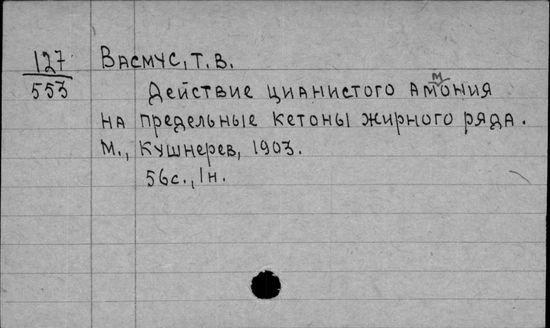 127
553
Васмус, Т. В.
Действие цианистого аммония
на предельные кетоны жирного ряда.
М., Кушнерев, 1903.
56с., 1н.